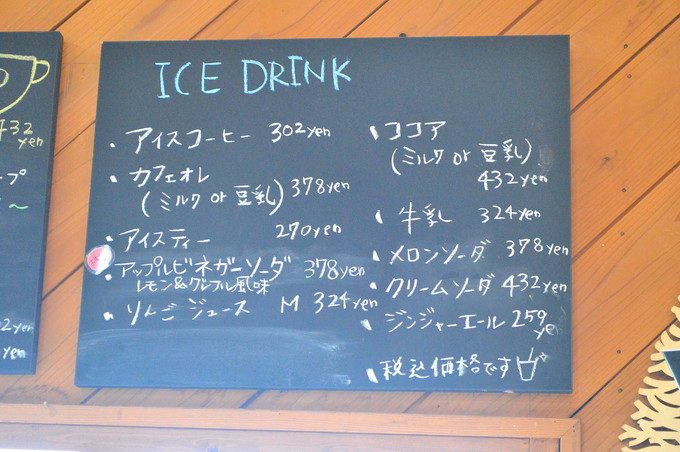 ICE DRINK
・アイスコーヒー 302yen
・カフェオレ
(ミルク or 豆乳) 378yen
・アイスティー 270yen
・アップルビネガーソーダ 378yen
レモン&グンプル風味
・りんごジュース M 324yen
・ココア
(ミルク or 豆乳)
432yen
・牛乳 324yen
・メロンソーダ 378yen
・クリームソーダ 432yen
・ジンジャーエール 259yen
・税込価格です
432
yen
プ
~
yen
yen